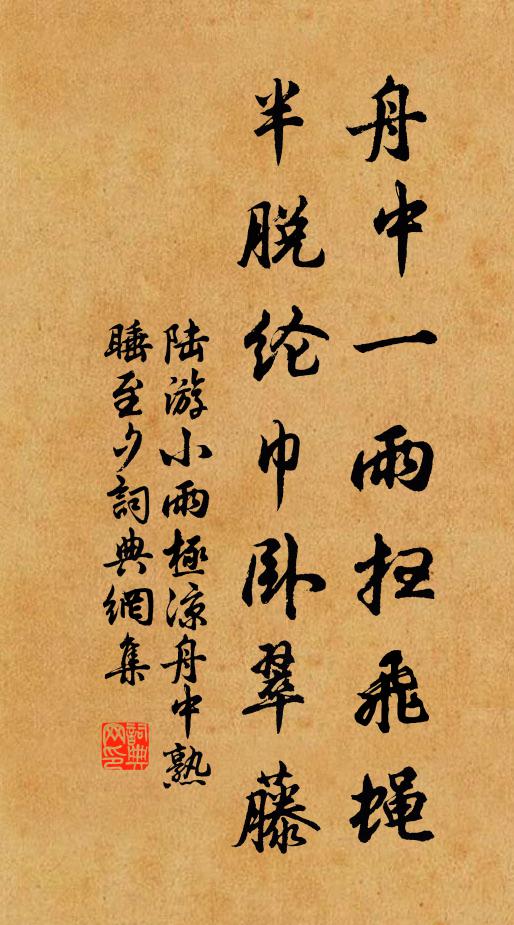 舟中一雨扫飞蝇
半脱纶巾卧翠藤
陆游小雨極凉舟中熟
睡至夕詞典網集
詞典网印